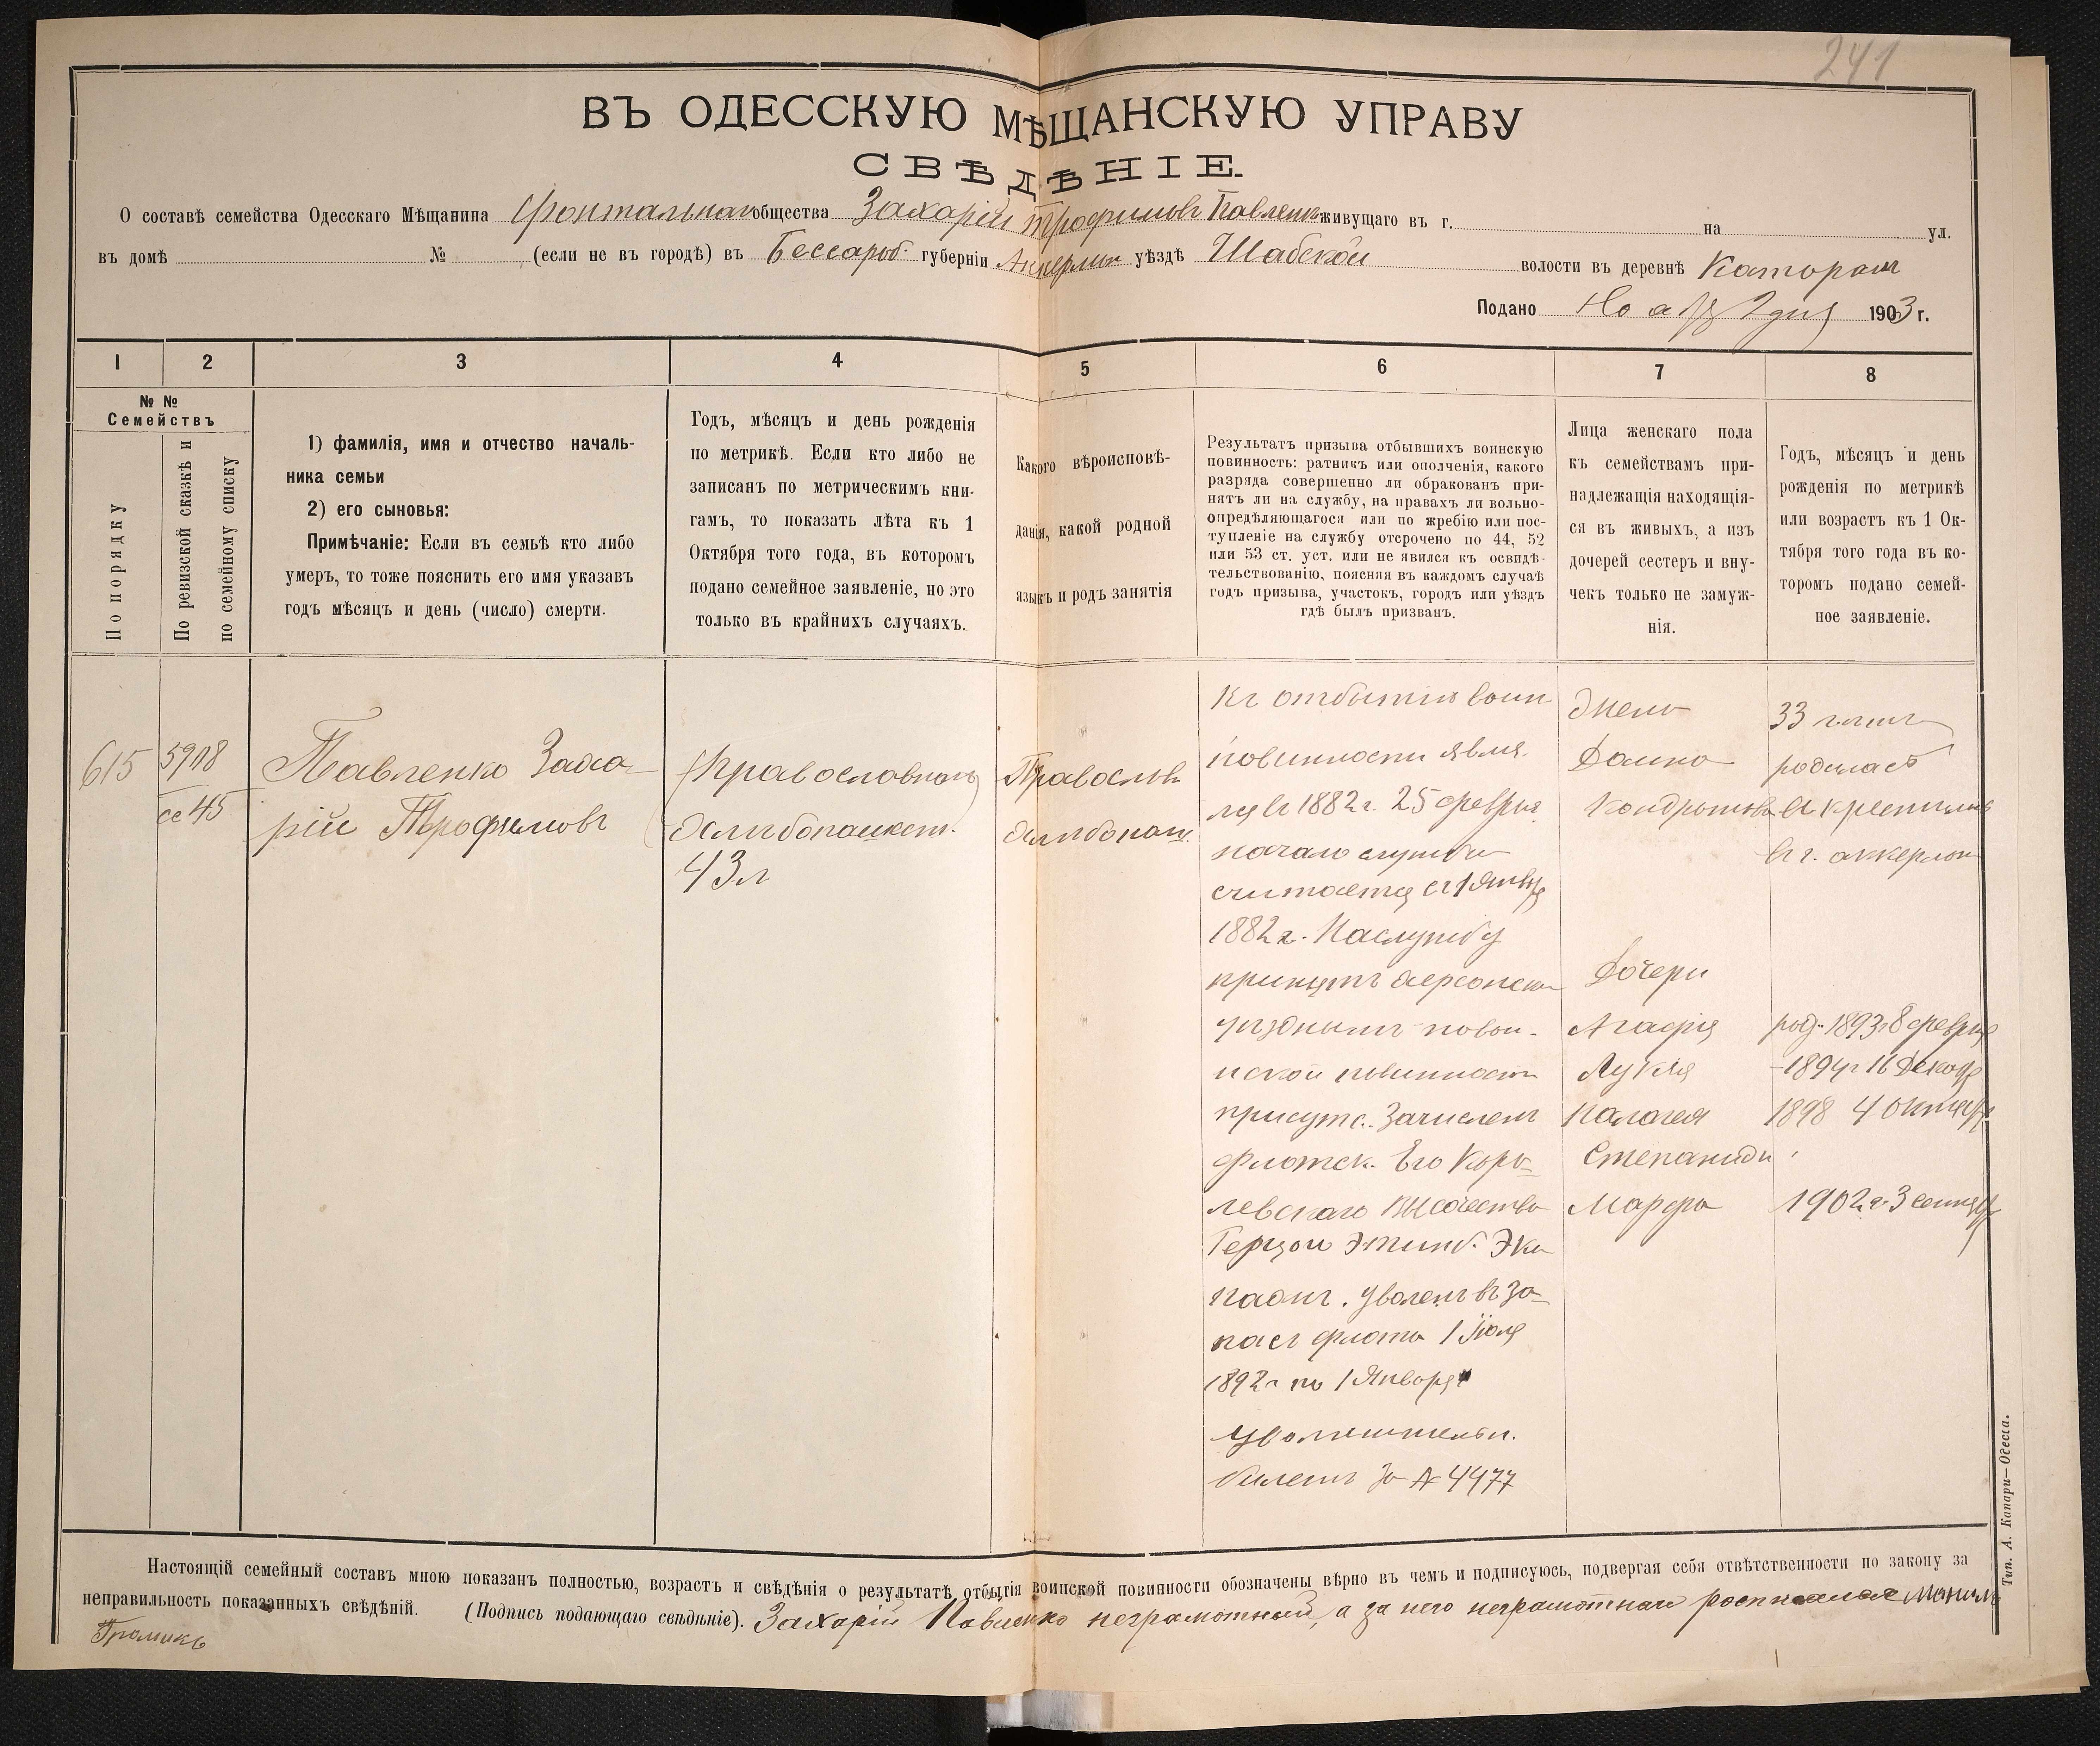 241
ВЪ ОДЕССКУЮ МѢЩАНСКУЮ УПРАВУ
СВѢДѢНІЕ.
О составѣ семейства Одесскаго Мѣщанина Фонтальнаго общества Захарій Трофимовъ Павленко живущаго въ г. на ул.
въ домѣ № (если не въ городѣ) въ Бессараб. губерніи Аккерман уѣздѣ Шабской волости въ деревнѣ
Подано 1903 г.
1 2 3 4 5 6 7 8
№ №
Семействъ
По порядку
По ревизской сказкѣ и
по семейному списку
1) фамилія, имя и отчество началь-
ника семьи
2) его сыновья:
Примѣчаніе: Если въ семьѣ кто либо
умеръ, то тоже пояснить его имя указавъ
годъ мѣсяцъ и день (число) смерти.
Годъ, мѣсяцъ и день рожденія
по метрикѣ. Если кто либо не
записанъ по метрическимъ кни-
гамъ, то показать лѣта къ 1
Октября того года, въ которомъ
подано семейное заявленіе, но это
только въ крайнихъ случаяхъ.
Какого вѣроисповѣ-
данія, какой родной
языкъ и родъ занятія
Результатъ призыва отбывшихъ воинскую
повинность: ратникъ или ополченія, какого
разряда совершенно ли обракованъ при-
нятъ ли на службу, на правахъ ли вольно-
опредѣляющагося или по жребію или пос-
тупленіе на службу отсрочено по 44, 52
или 53 ст. уст. или не явился къ освидѣ-
тельствованію, поясняя въ каждомъ случаѣ
годъ призыва, участокъ, городъ или уѣздъ
гдѣ былъ призванъ.
Лица женскаго пола
къ семействамъ при-
надлежащія находящія-
ся въ живыхъ, а изъ
дочерей сестеръ и вну-
чекъ только не замуж-
нія.
Годъ, мѣсяцъ и день
рожденія по метрикѣ
или возрастъ къ 1 Ок-
тября того года въ ко-
торомъ подано семей-
ное заявленіе.
615
5918
45
Павленко Заха-
рій Трофимовъ
(Православнаго)
43 л
Православ.
Къ отбытію воин
повинности явил.
ся въ 1882 г. 25 февраля
начало службы
считается съ 1 Январ
1882 г. На службу
принятъ Херсонски
уѣзднымъ по вои-
нской повинности
присутс. Зачисленъ
флотск. Его Коро-
левскаго Высочества
Герцога Эдинб. Эки
пажъ. Уволенъ въ За-
пасъ флота 1 Іюля
1892 г по 1 Января
Увольнительн.
билетъ за № 4477
Жена
Домна
Кондратова
Дочери
Агафія
Лукія
Палагея
Степанида
Марфа
33 лѣтъ
родилась
и крестилась
въ г. Аккерман
род. 1893 г 8 февраля
1894 г 16 Декабр
1898 4 Октября
1902 г. 3 сентября
Настоящій семейный составъ мною показанъ полностью, возрастъ и свѣдѣнія о результатѣ отбытія воинской повинности обозначены вѣрно въ чемъ и подписуюсь, подвергая себя отвѣтственности по закону за
неправильность показанныхъ свѣдѣній. (Подпись подающаго свѣдѣніе). Захарій Павленко неграмотный, а за него неграмотнаго росписался
Тип. А. Капари—Одесса.